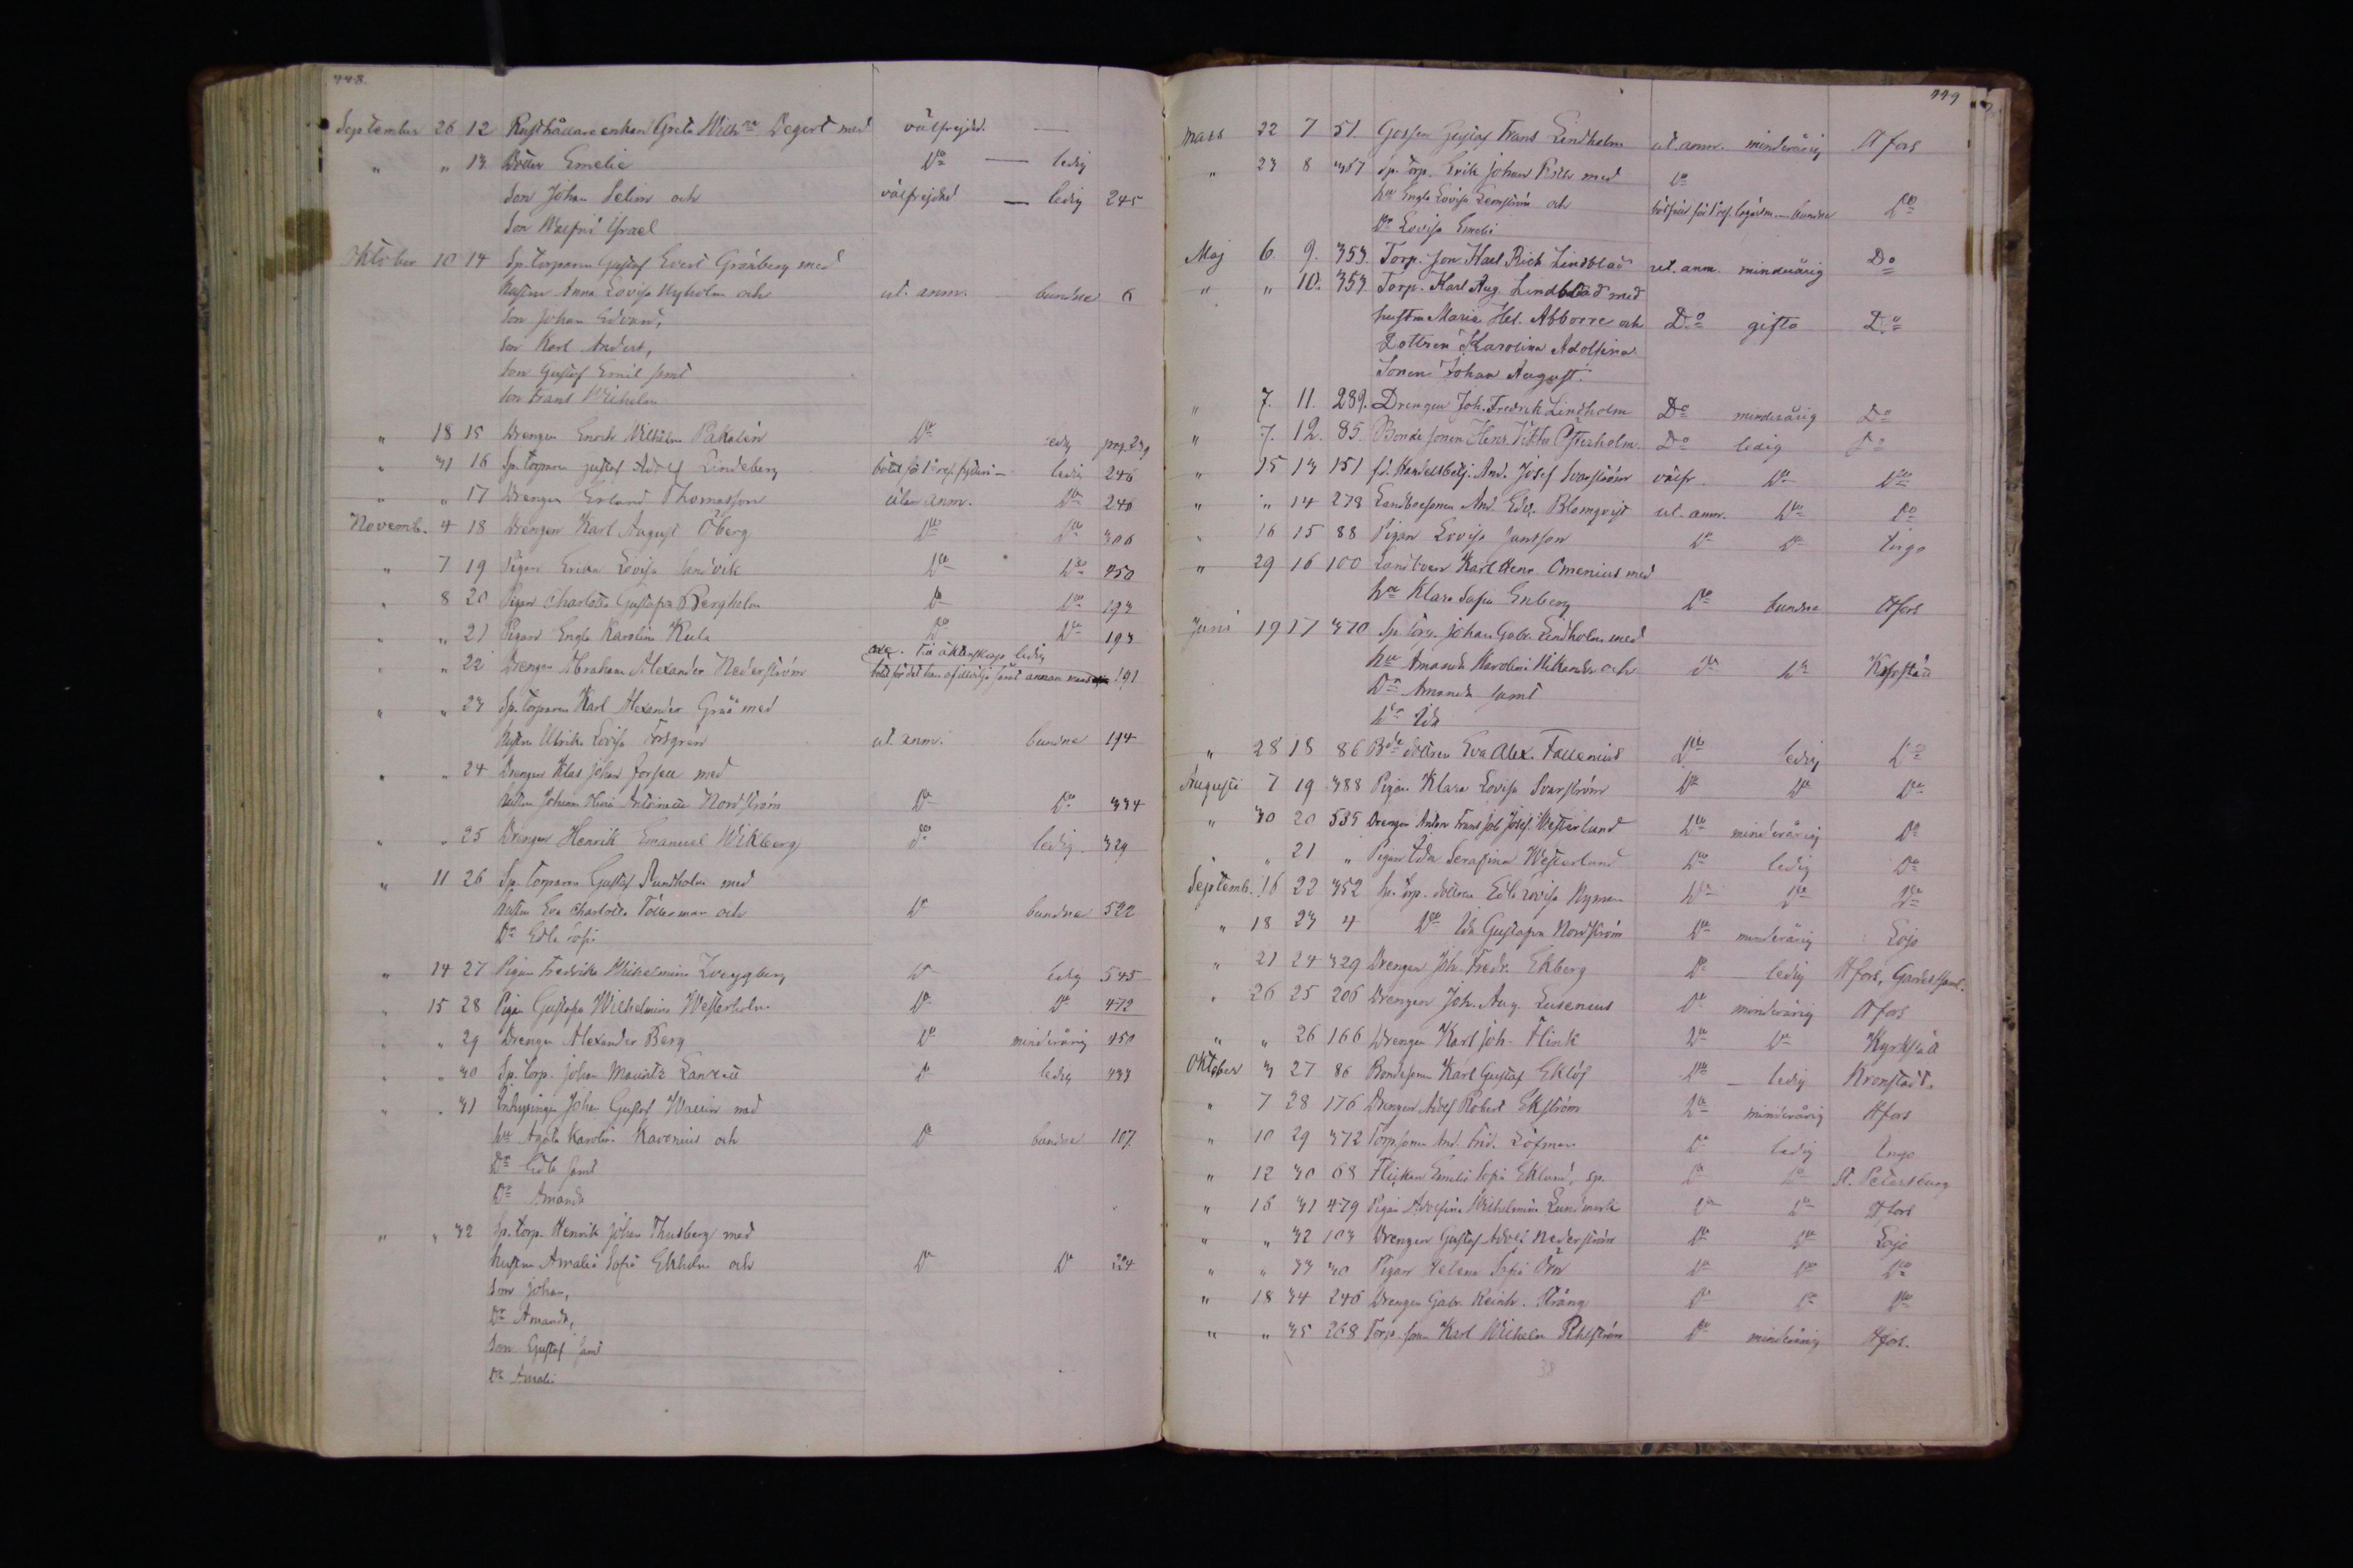 448.
September 26 12 Rusthållareenkan Greta Wilh:na Degert med välfrejdad. —
" " 13 Dotter Emelie Do — ledig
Son Johan Selim och välfrejdad — ledig 245
Son Israel
Oktober 10 14 Sp. torparen Gustaf Evert Grönberg med
hustrun Anna Lovisa Nyholm och ut. anm. bundne 6
Son Johan Edvard,
Son Karl Anders,
Son Gustaf Emil samt
Son Frans Wilhelm
" 18 15 Drengen Enoch Wilhelm Pakalén Do ledig
" 31 16 Sp. torparen Gustaf Adolf Lindeberg ledig 246
" " 17 Drengen Erland Thomasson utan anm. Do 246
Novemb. 4 18 Drengen Karl August Öberg Do Do 306
" 7 19 Pigan Erika Lovisa Sandvik Do Do 450
" 8 20 Pigan Charlotta Gustafva Bergholm Do Do 193
" " 21 Pigan Engla Karolina Kula Do Do 193
" " 22 Drengen Abraham Alexander Nederström till äktenskap ledig 191
" " 23 Sp. torparen Karl Alexander Grää med
hustrun Ulrika Lovisa ut. anm. bundne 194
" " 24 Drengen Klas Johan Forsell med
hustrun Johanna Nordström Do Do 334
" " 25 Drengen Henrik Emanuel Wikberg Do ledig 329
" 11 26 Sp. torparen Gustaf Sundholm med
hustrun Eva Charlotta Töllerman och Do bundne 522
Dr Edla Sofia
" 14 27 Pigan Fredrika Wilhelmina Zweygberg Do ledig 545
" 15 28 Pigan Gustafva Wilhelmina Westerholm Do Do 472
" " 29 Drengen Alexander Berg Do minderårig 450
" " 30 Sp. torp. Johan Mauritz Do ledig 433
" " 31 Inhysingen Johan Gustaf Wallin med
hu Agata Karolina Kavenius och Do bundne 107
Dr Edla samt
Dr Amanda
" " 32 Sp. torp. Henrik Johan Thusberg med
hustrun Amalia Sofia Ekholm och Do Do 224
Son Johan,
Dr Amanda,
Son Gustaf samt
Dr Amalia
449
Mars 22 7 51. Gossen Gustaf Frans Lindholm ut. anm. minderårig Hfors
" 23 8 357 Sp. torp. Erik Johan med Do
hu Engla Lovisa och bundne Do
Dr Lovisa Emelie
Maj 6. 9. 353. Torp. son Karl Rich Lindblad ut. anm. minderårig Do
" " 10. 353. Torp. Karl Aug. Lindblad med
hustrun Maria Hel. Abborre och Do gifta Do
Dottren Karolina Adolfina
Sonen Johan August.
" 7. 11. 289. Drengen Joh. Fredrik Lindholm Do minderårig Do
" 7. 12. 85. Bonde sonen Henr. Viktor Österholm. Do ledig Do
" 15 13 151 fd. Handelsbetj. And. Josef Svarström välfr. Do Do
" " 14 278 Landboesonen And. Edv. Blomqvist ut. anm. Do Do
" 16 15 88 Pigan Lovisa Jansson Do Do Ingo
" 29 16 100 Landboen Karl Henr. Omenius med
hu Klara Sofia Enberg Do bundne Hfors
Juni 19 17 370 Sp. torp. Johan Gabr. Lindholm med
hu Amanda Karolina Wikander och Do Do
Dr Amanda samt
Dr Ida
" 28 18 86 dottren Eva Alex. Fallenius Do ledig Do
Augusti 7 19 388 Pigan Klara Lovisa Svarström Do Do Do
" 30 20 535 Drengen Anton Frans Josef Westerlund Do minderårig Do
" 21 " Pigan Ida Serafina Westerlund Do ledig Do
Septemb. 16 22 352 Sp. torp. dottren Edla Lovisa Nyman Do Do Do
" 18 23 4 Do Ida Gustafva Nordström Do minderårig Lojo
" 21 24 329 Drengen Joh. Fredr. Ekberg Do ledig Hfors,
" 26 25 206 Drengen Joh. Aug. Lusenius Do minderårig Hfors
" " 26 166 Drengen Karl Joh. Flink Do Do Kyrkslätt
Oktober 3 27 86 Bondesonen Karl Gustaf Eklöf Do ledig Kronstadt.
" 7 28 176 Drengen Adolf Robert Ekström Do minderårig Hfors
" 10 29 372 Torp.sonen And. Frid. Löfman Do ledig Ingo
" 12 30 68 Flickan Emelie Sofia Eklund, sp. Do Do St. Petersburg
" 15 31 479 Pigan Adolfina Wilhelmina Lundmark Do Do Hfors
" " 32 103 Drengen Gustaf Adolf Nederström Do Do Lojo
" " 33 30 Pigan Helena Sofia Örn Do Do Do
" 18 34 246 Drengen Gabr. Reinh. Strång Do Do Do
" " 35 268 Torp. sonen Karl Wilhelm Pihlström Do minderårig Hfors.
38